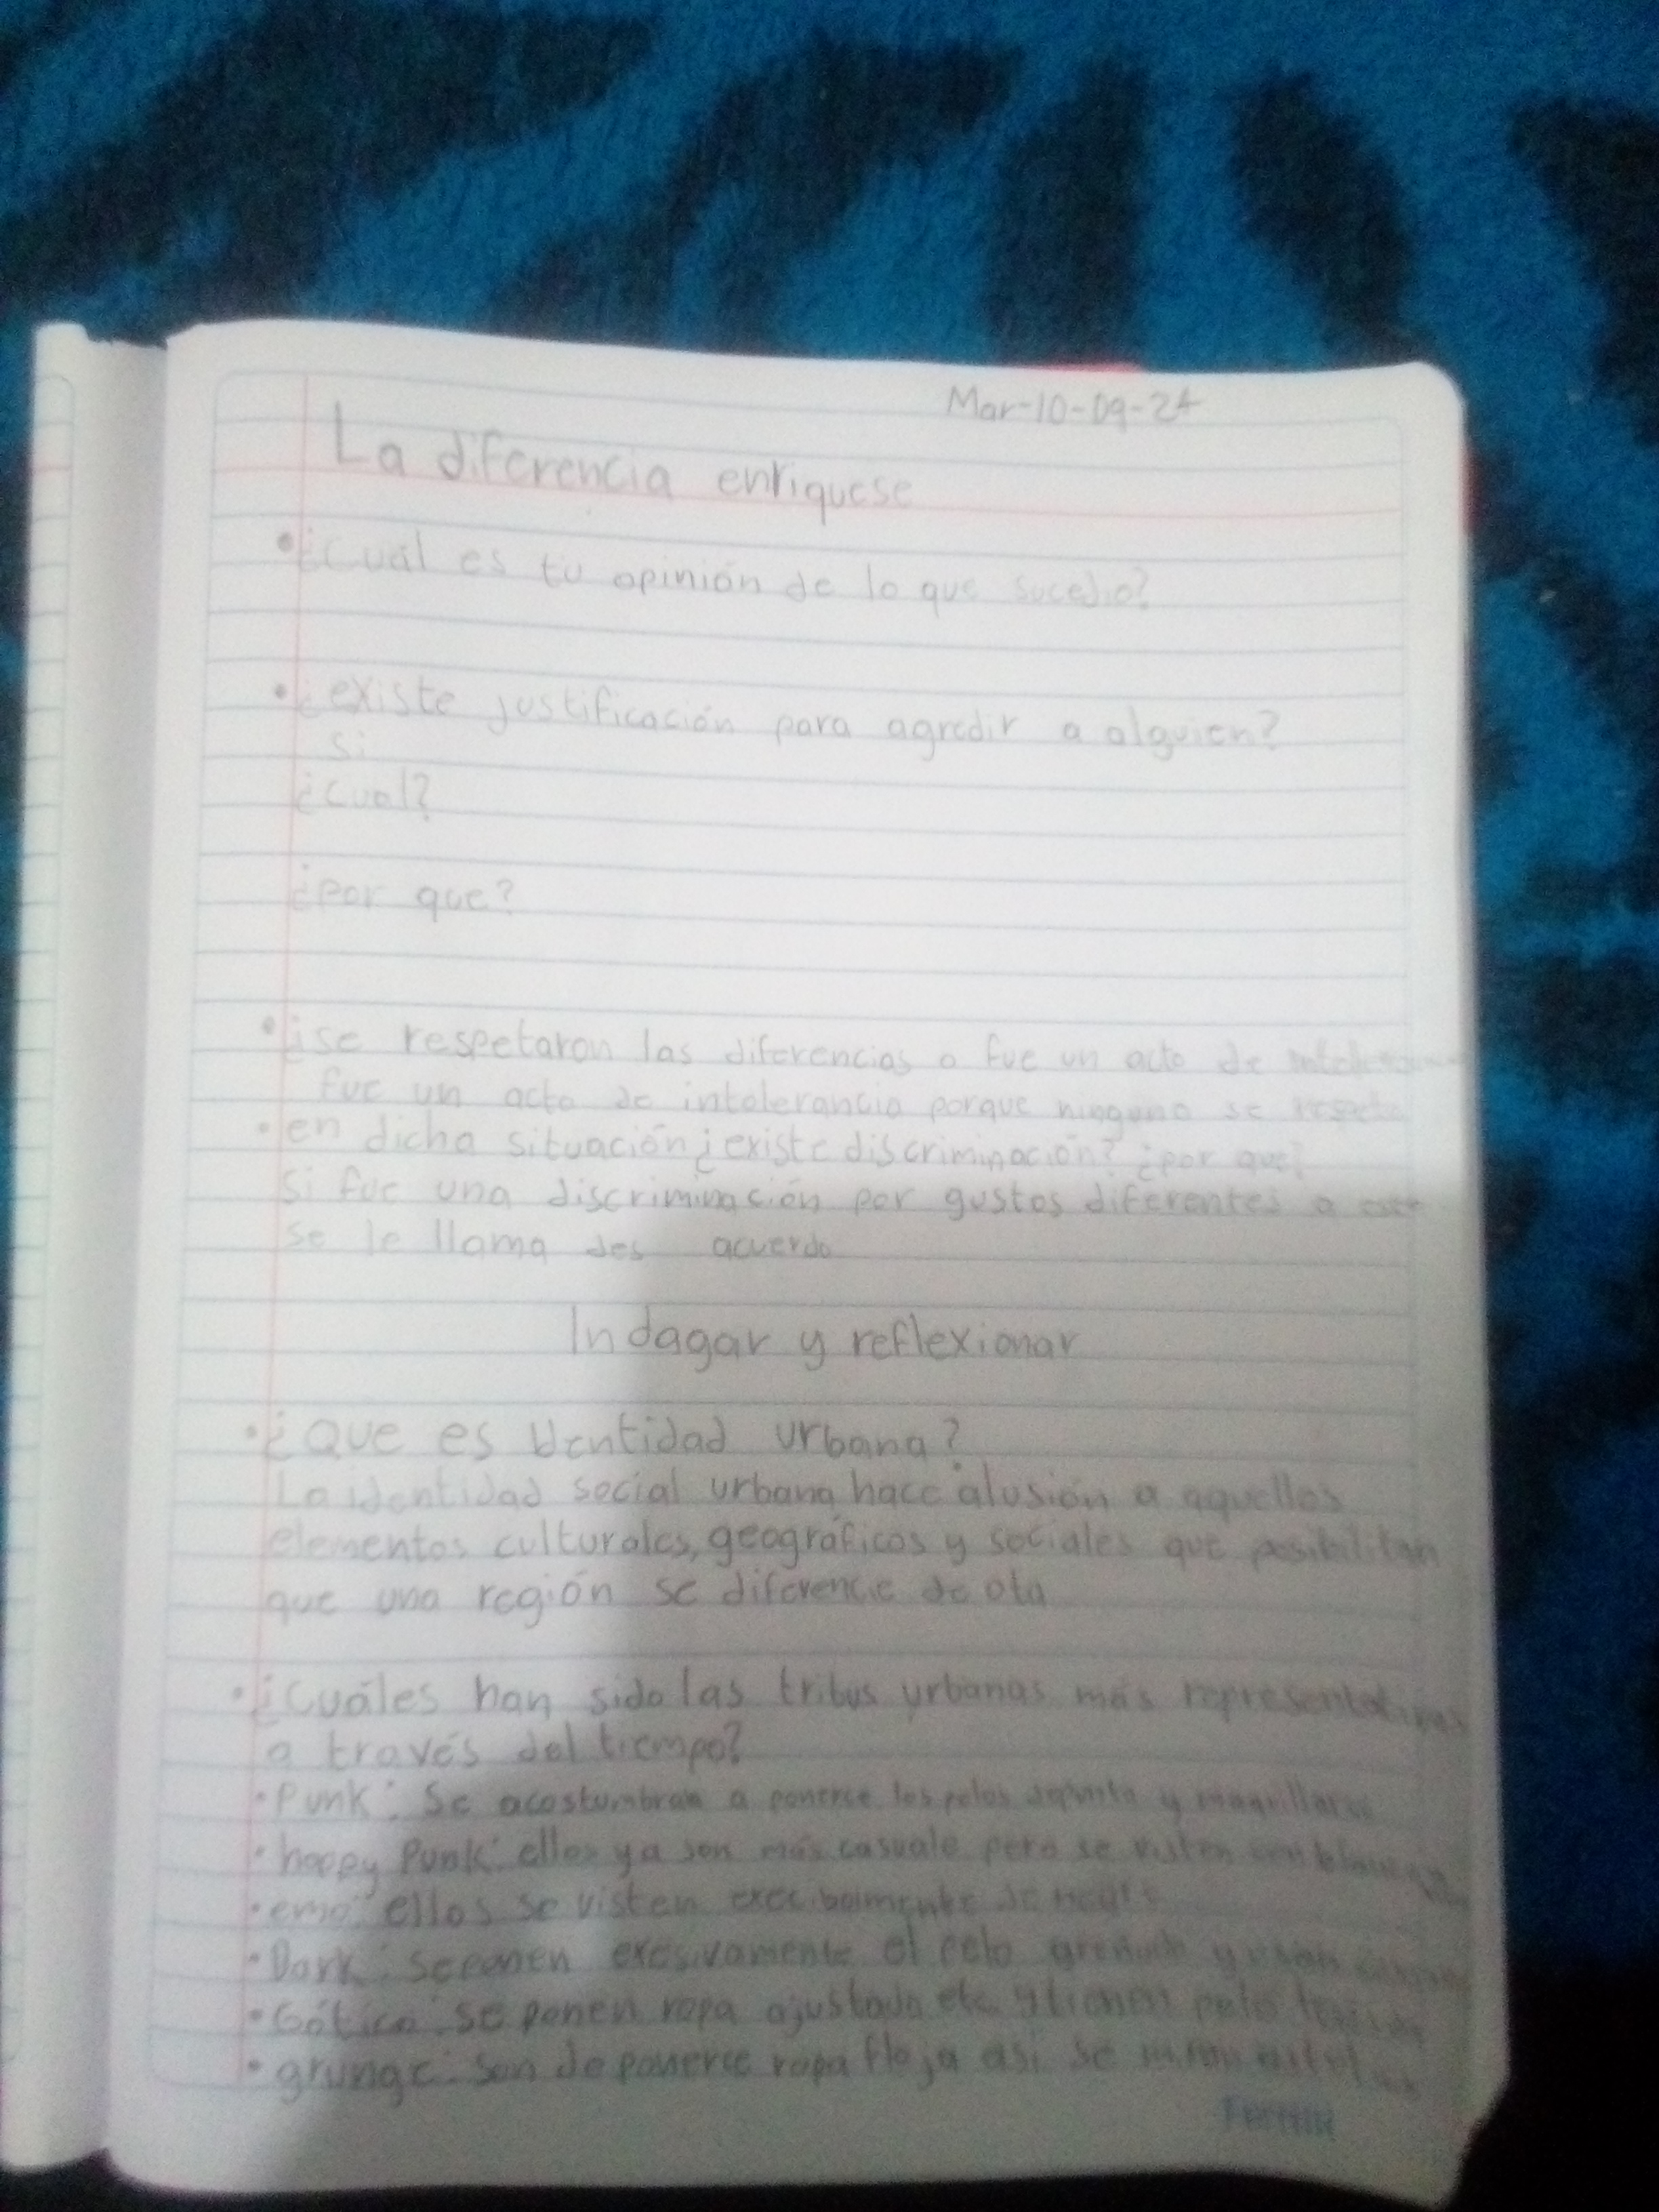 Mar-10-09-24
La diferencia enriquese
• ¿Cual es tu opinión de lo que sucedio?
• ¿existe justificación para agredir a alguien?
si
¿Cual?
¿Por que?
• ¿se respetaron las diferencias o fue un acto de
fue un acto de intolerancia porque ninguno se
• en dicha situación ¿existe discriminación? ¿por que?
si fue una discriminación por gustos diferentes a
se le llama des acuerdo
Indagar y reflexionar
• ¿Que es Identidad urbana?
La identidad social urbana hace alusión a aquellos
elementos culturales, geográficos y sociales que posibilitan
que una región se diferencie de ota
• ¿Cuáles han sido las tribus urbanas más representativas
a través del tiempo?
• Punk: Se acostumbran a ponerce los pelos y
• happy Punk: ellos ya son más casuale pero se visten
• emo: ellos se visten de
• Dark: se ponen exesivamente el pelo y
• Gótico: se ponen ropa ajustada etc. y tienen pelo
• grunge: son de ponerce ropa floja asi se